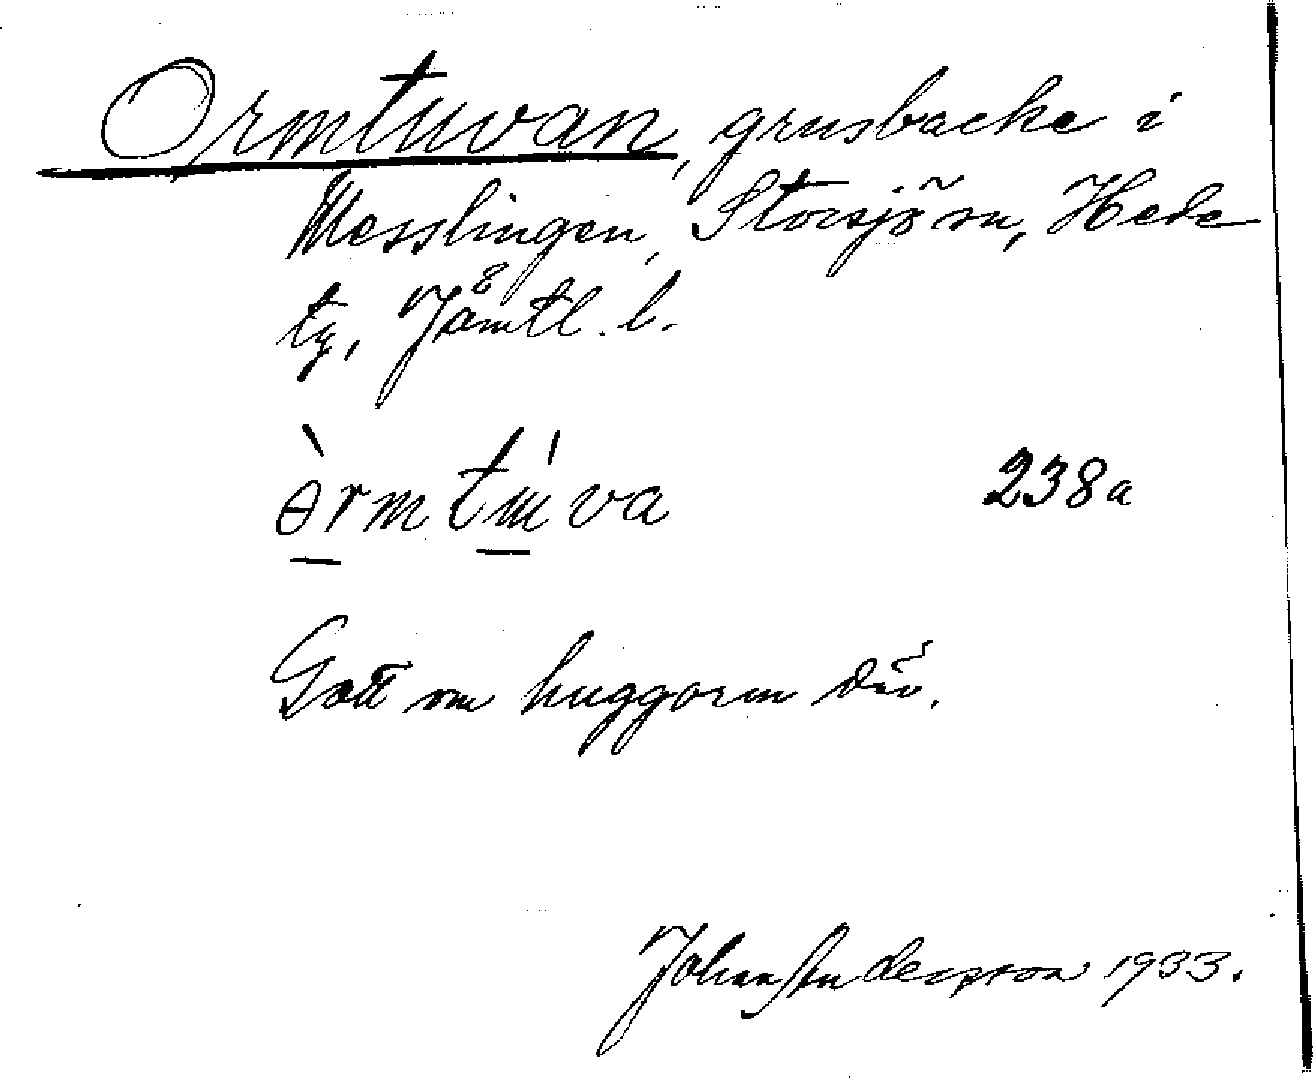 Ormtuvan, grusbacke i
Messlingen, Storsjö sn, Hede
tg, Jämtl. l.
òrmtúva 238a
Gott om huggorm där.
Johan Andersson 1933.